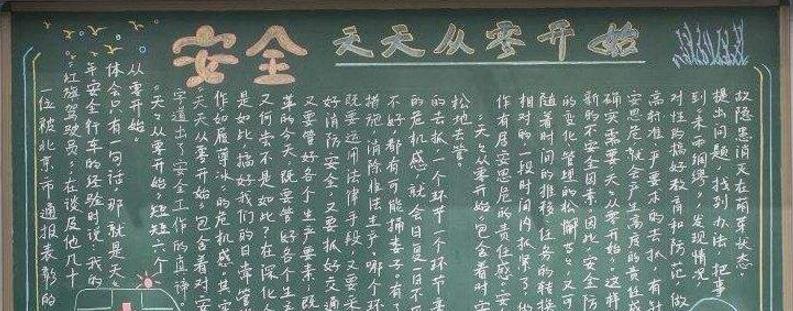 安全 天天从零开始
一位被北京市通报表彰的
红旗驾驶员,在谈及他几十
年安全行车的经验时说:我的
体会只有一句话,那就是天天
从零开始。
“天天从零开始”,短短六个
字道出了安全工作的真谛。
“天天从零开始”包含着对安
作如履薄冰的危机感。其实
是如此,搞好我们的日常管
又何尝不是如此?在深化
革的今天,既要管好各个生
又要管好各个生产要素,既
好消防安全,又要抓好交通
既要运用法律手段,又要采
措施,消除非法生产,哪个环
不好,都有可能捅娄子。有了
的危机感,就会日复一日不
的去抓一个环节一个环节
松地去管。
“天天从零开始”包含着对安
作有居安思危的责任感。安
相对的,一段时间内抓紧了,
随着时间的推移、任务的转换
的变化、管理的松懈等,又可
新的不安全因素。因此,安全防
确实需要天天从零开始。这样
安思危,就会产生高度的责任
高标准、严要求的去抓,有针
对性的搞好教育和防范,做
到未雨绸缪,发现情况,
提出问题,找到办法,把事
故隐患消灭在萌芽状态。